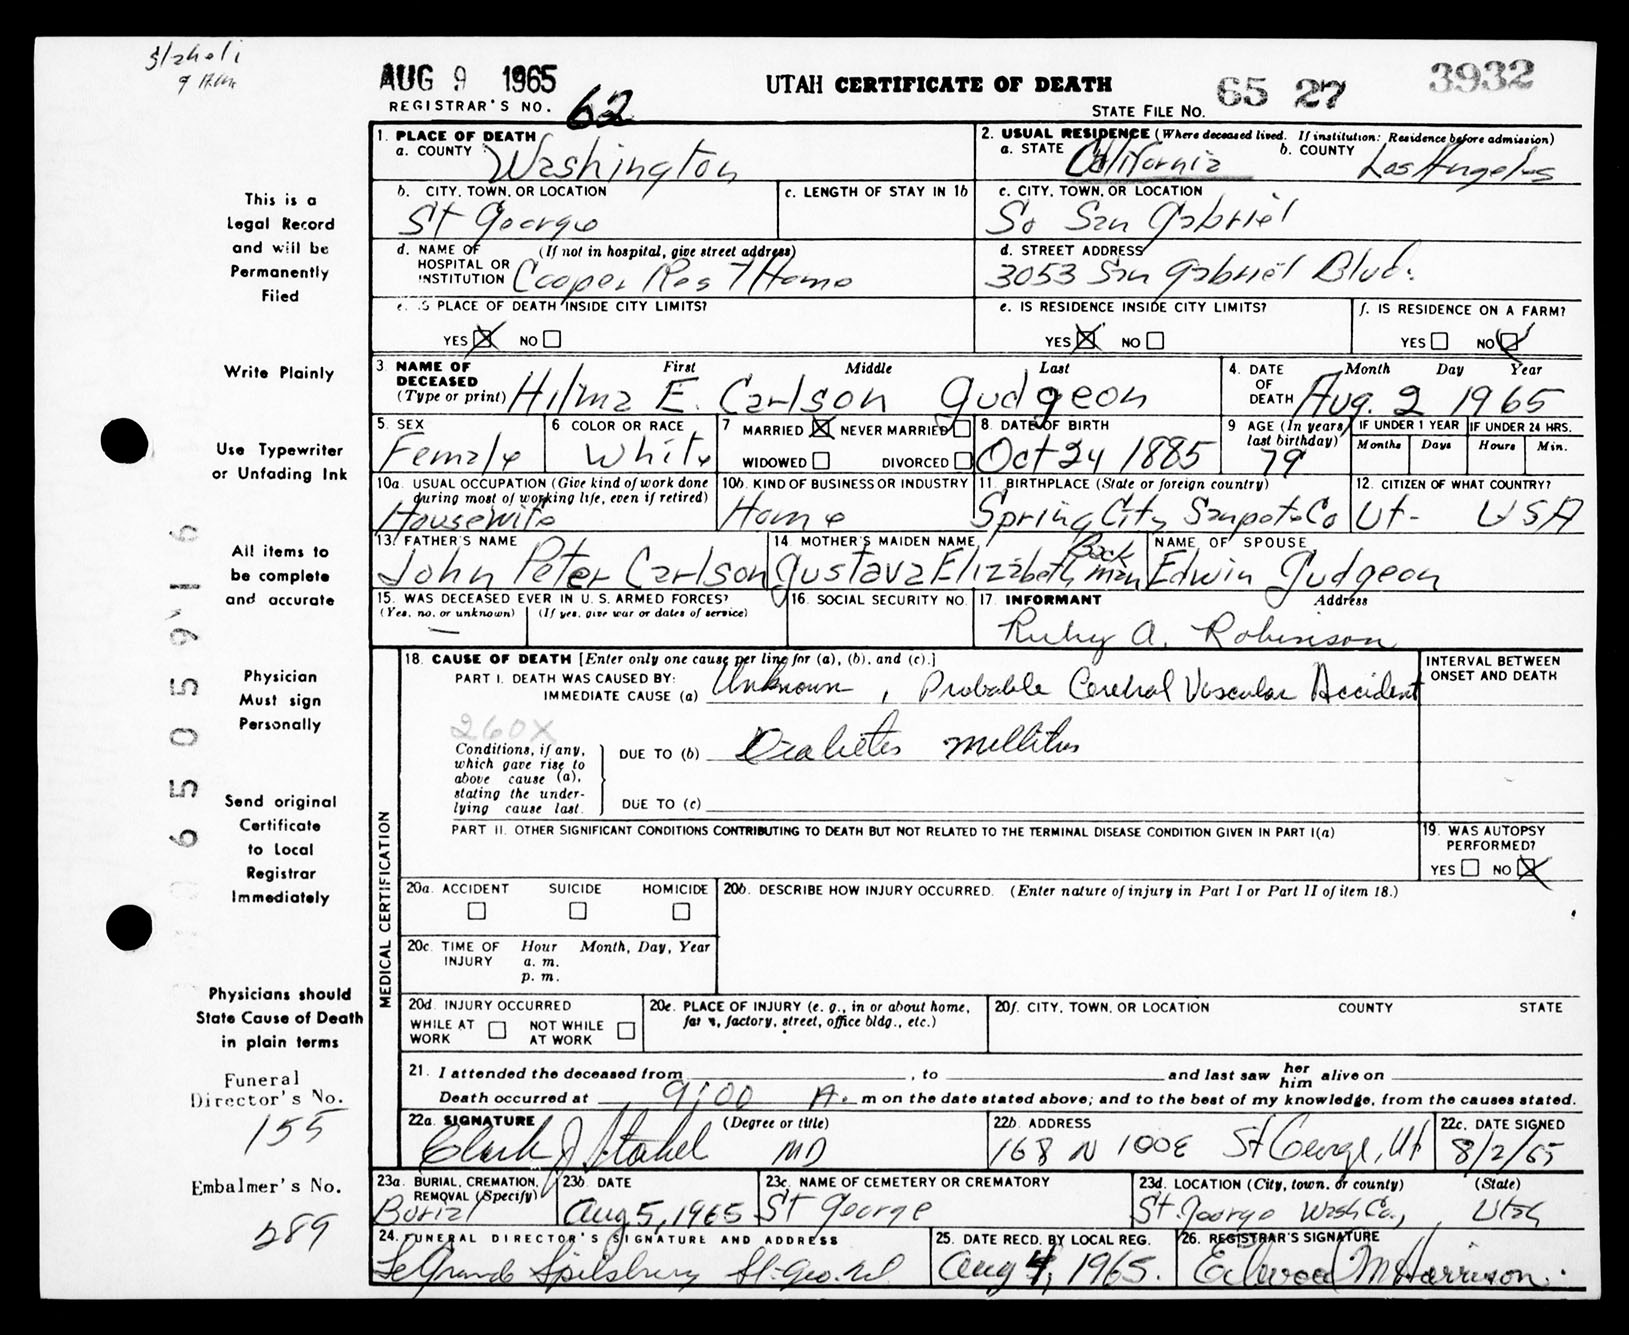 Staheli
9 A.M.
AUG 9 1965
REGISTRAR'S NO. 62
UTAH CERTIFICATE OF DEATH
STATE FILE NO. 65 27 3932
This is a
Legal Record
and will be
Permanently
Filed
Write Plainly
Use Typewriter
or Unfading Ink
All items to
be complete
and accurate
Physician
Must sign
Personally
Send original
Certificate
to Local
Registrar
Immediately
Physicians should
State Cause of Death
in plain terms
Funeral
Director's No.
155
Embalmer's No.
289
1. PLACE OF DEATH
a. COUNTY Washington
2. USUAL RESIDENCE (Where deceased lived. If institution: Residence before admission)
a. STATE California b. COUNTY Los Angeles
b. CITY, TOWN, OR LOCATION
St George
c. LENGTH OF STAY IN 1b
c. CITY, TOWN, OR LOCATION
So San Gabriel
d. NAME OF HOSPITAL OR INSTITUTION (If not in hospital, give street address)
Cooper Rest Home
d. STREET ADDRESS
3053 San Gabriel Blvd.
e. IS PLACE OF DEATH INSIDE CITY LIMITS?
YES NO
e. IS RESIDENCE INSIDE CITY LIMITS?
YES NO
f. IS RESIDENCE ON A FARM?
YES NO
3. NAME OF DECEASED (Type or print) First Middle Last
Hilma E. Carlson Gudgeon
4. DATE OF DEATH Month Day Year
Aug. 2 1965
5. SEX
Female
6 COLOR OR RACE
White
7 MARRIED NEVER MARRIED
WIDOWED DIVORCED
8. DATE OF BIRTH
Oct 24 1885
9 AGE (In years last birthday)
79
IF UNDER 1 YEAR
Months Days
IF UNDER 24 HRS.
Hours Min.
10a. USUAL OCCUPATION (Give kind of work done during most of working life, even if retired)
Housewife
10b. KIND OF BUSINESS OR INDUSTRY
Home
11. BIRTHPLACE (State or foreign country)
Spring City Sanpete Co Ut-
12. CITIZEN OF WHAT COUNTRY?
USA
13. FATHER'S NAME
John Peter Carlson
14. MOTHER'S MAIDEN NAME
Gustava Elizabeth Backman
NAME OF SPOUSE
Edwin Gudgeon
15. WAS DECEASED EVER IN U.S. ARMED FORCES?
(Yes, no, or unknown) (If yes, give war or dates of service)
—
16. SOCIAL SECURITY NO.
17. INFORMANT Address
Ruby A. Robinson
MEDICAL CERTIFICATION
18. CAUSE OF DEATH [Enter only one cause per line for (a), (b), and (c).]
PART I. DEATH WAS CAUSED BY:
IMMEDIATE CAUSE (a) Unknown, Probable Cerebral Vascular Accident
INTERVAL BETWEEN ONSET AND DEATH
260X
Conditions, if any, which gave rise to above cause (a), stating the underlying cause last.
DUE TO (b) Diabetes mellitus
DUE TO (c)
PART II. OTHER SIGNIFICANT CONDITIONS CONTRIBUTING TO DEATH BUT NOT RELATED TO THE TERMINAL DISEASE CONDITION GIVEN IN PART I(a)
19. WAS AUTOPSY PERFORMED?
YES NO
20a. ACCIDENT SUICIDE HOMICIDE
20b. DESCRIBE HOW INJURY OCCURRED. (Enter nature of injury in Part I or Part II of item 18.)
20c. TIME OF INJURY Hour Month, Day, Year
a. m.
p. m.
20d. INJURY OCCURRED
WHILE AT WORK NOT WHILE AT WORK
20e. PLACE OF INJURY (e. g., in or about home, farm, factory, street, office bldg., etc.)
20f. CITY, TOWN, OR LOCATION COUNTY STATE
21. I attended the deceased from , to and last saw her him alive on
Death occurred at 9:00 A. m on the date stated above; and to the best of my knowledge, from the causes stated.
22a. SIGNATURE (Degree or title)
Clark J Stahel MD
22b. ADDRESS
168 N 100E St George, Ut
22c. DATE SIGNED
8/2/65
23a. BURIAL, CREMATION, REMOVAL (Specify)
Burial
23b. DATE
Aug 5, 1965
23c. NAME OF CEMETERY OR CREMATORY
St George
23d. LOCATION (City, town, or county) (State)
St. George Wash Co., Utah
24. FUNERAL DIRECTOR'S SIGNATURE AND ADDRESS
LeGrande Spilsbury St. Geo. Ut.
25. DATE RECD. BY LOCAL REG.
Aug 4, 1965.
26. REGISTRAR'S SIGNATURE
Elwood M Harrison.